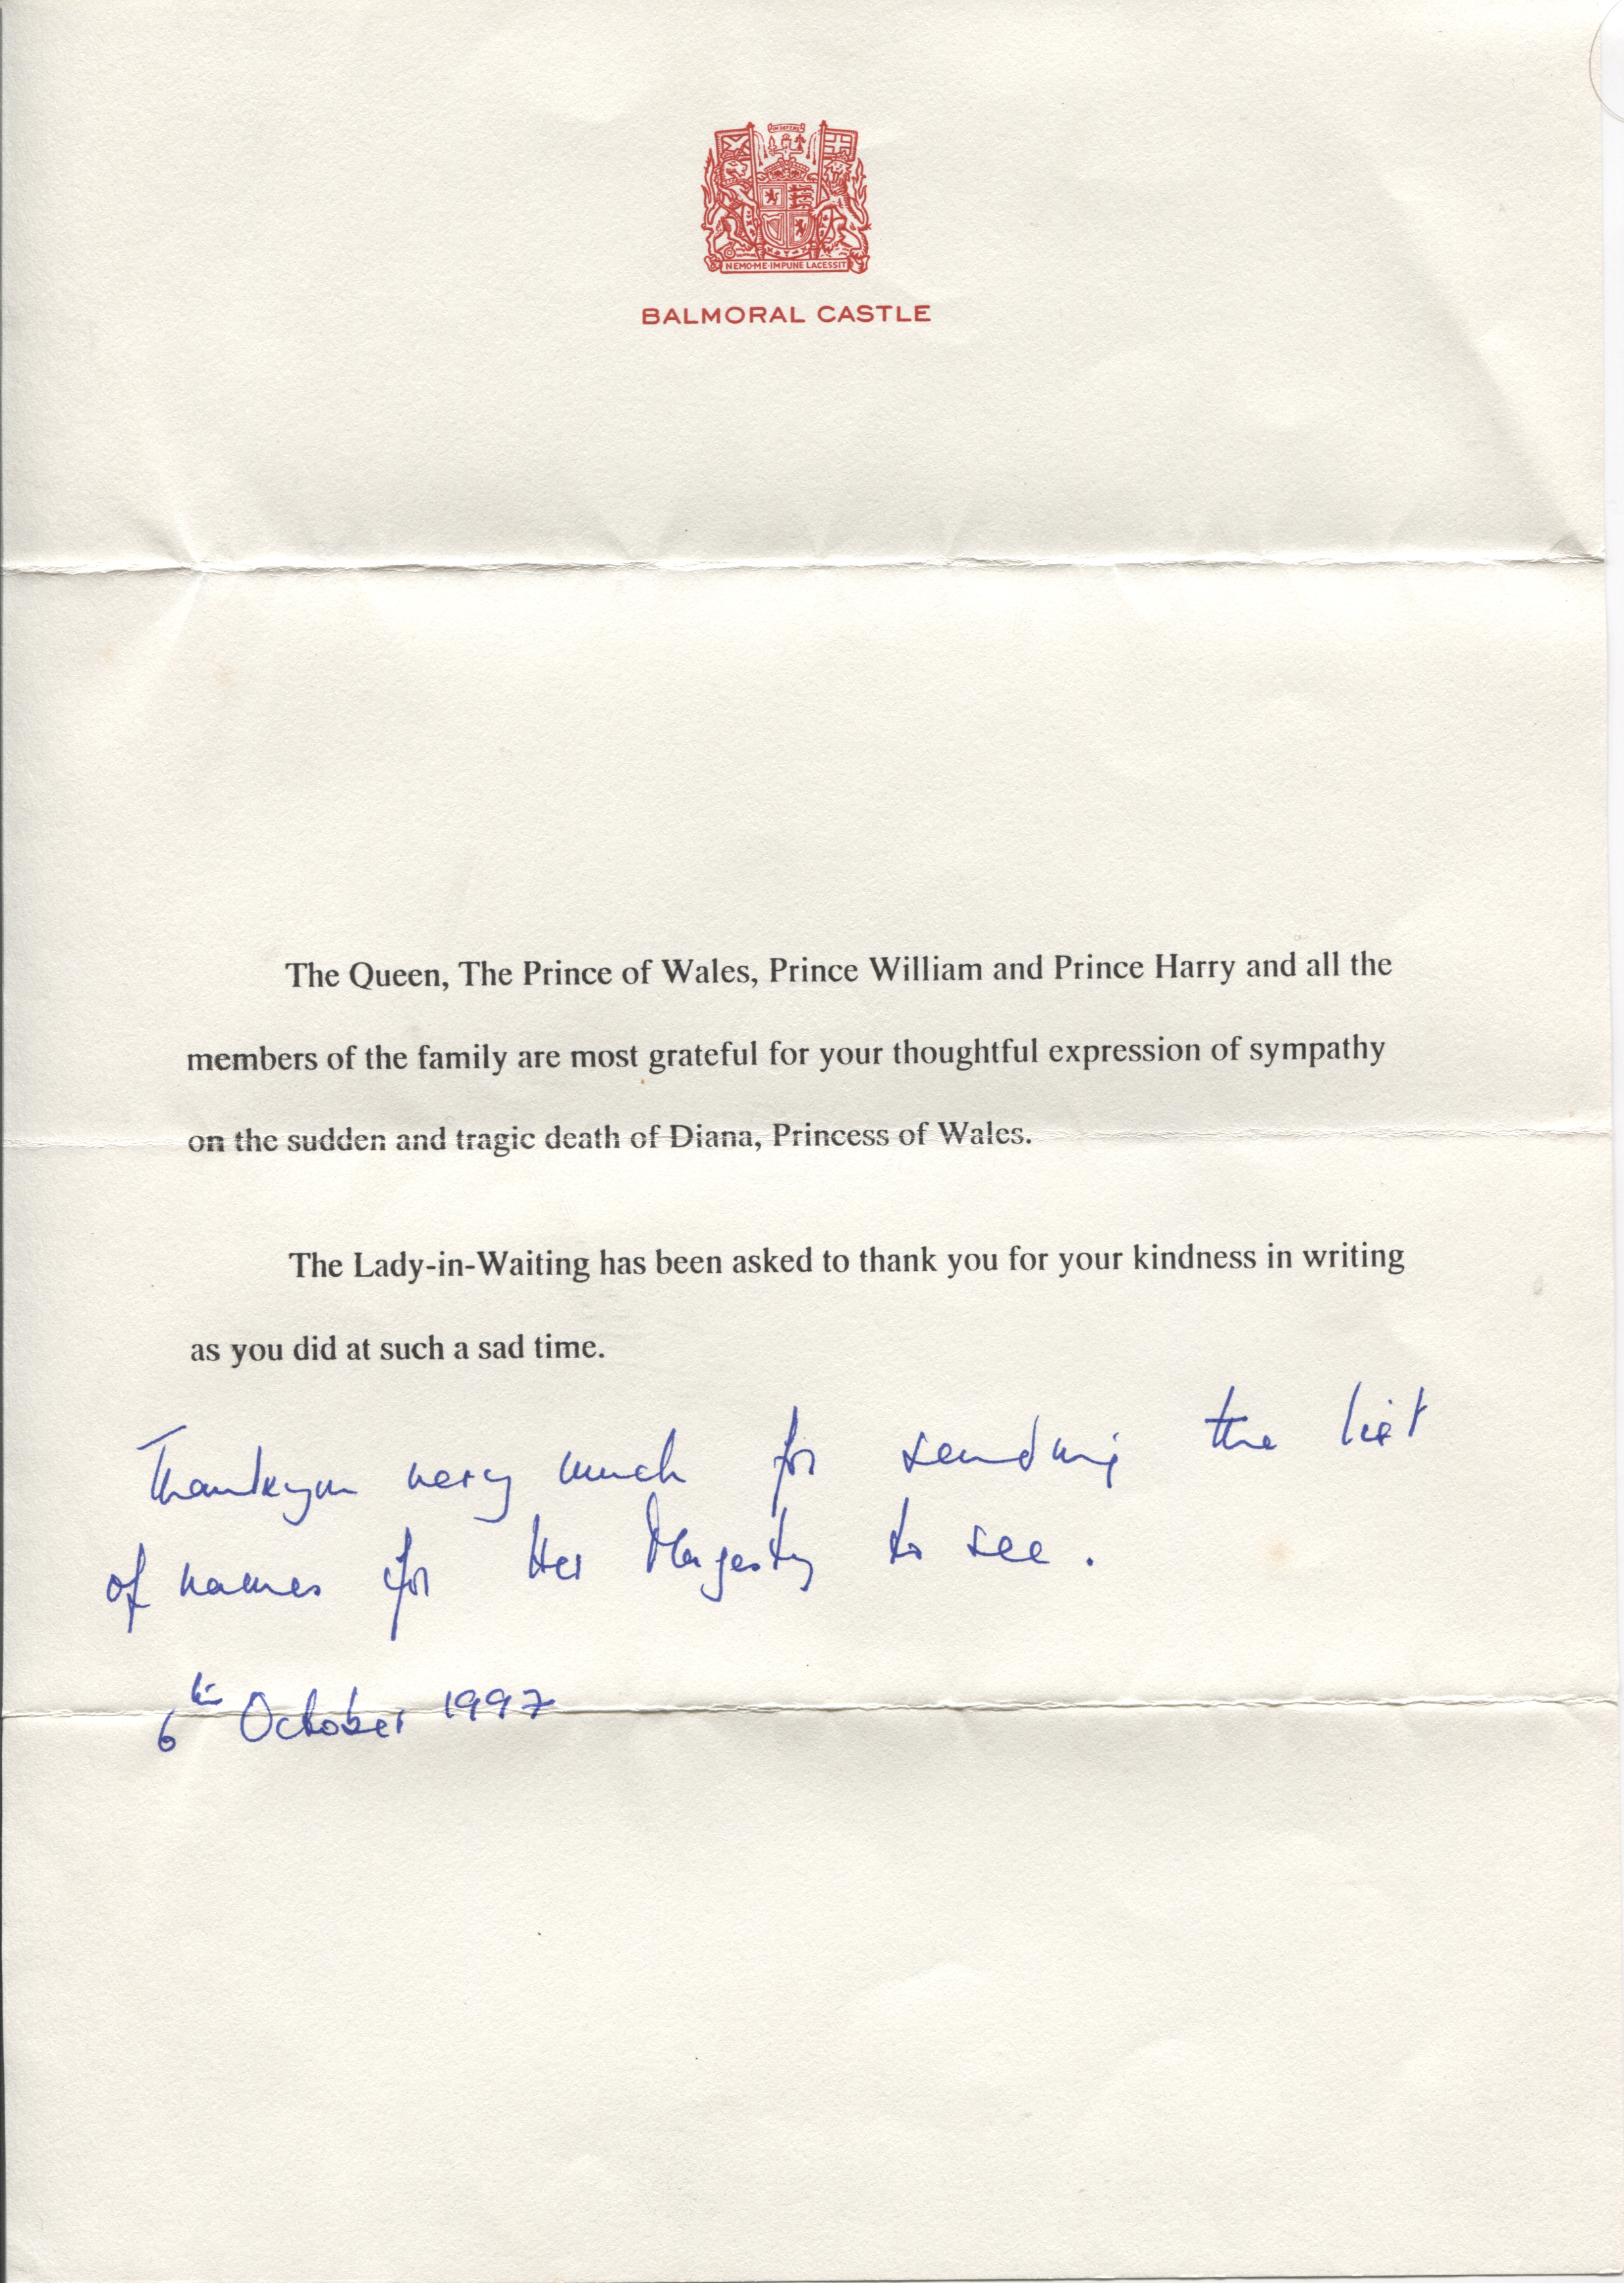 NEMO·ME·IMPUNE LACESSIT
BALMORAL CASTLE
The Queen, The Prince of Wales, Prince William and Prince Harry and all the
members of the family are most grateful for your thoughtful expression of sympathy
on the sudden and tragic death of Diana, Princess of Wales.
The Lady-in-Waiting has been asked to thank you for your kindness in writing
as you did at such a sad time.
Thankyou very much for sending the list
of names for Her Majesty to see.
6th October 1997